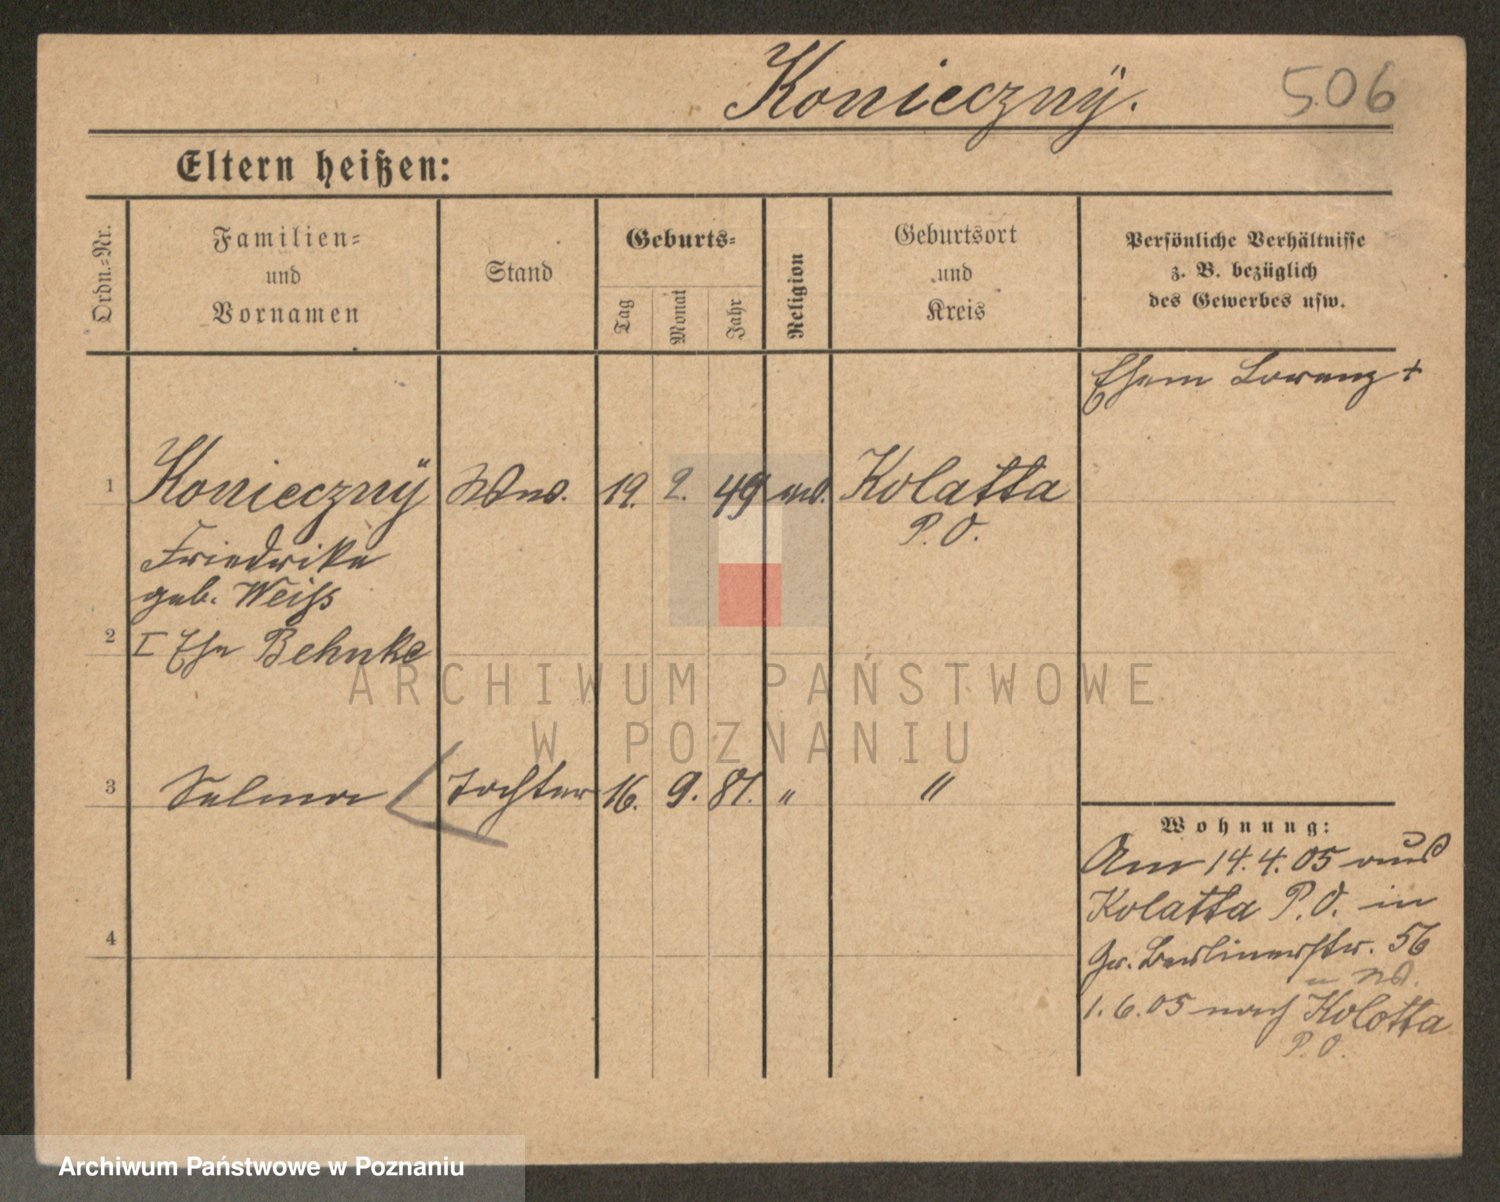 Koniecznÿ.
506
Eltern heißen:
Ordn.-Nr.
Familien-
und
Vornamen
Stand
Geburts-
Tag
Monat
Jahr
Religion
Geburtsort
und
Kreis
Persönliche Verhältnisse
z. B. bezüglich
des Gewerbes usw.
Ehem Lorenz +
1 Koniecznÿ Wwe. 19. 2. 49 Kolatta
P. O.
Friedrike
geb. Weiss
2 I Ehe Behnke
3 Selma Tochter 16. 9. 81. " "
4
Wohnung:
Am 14.4.05 aus
Kolatta P. O. in
Gr. Berlinerstr. 56
1.6.05 nach Kolatta
P. O.
ARCHIWUM PAŃSTWOWE
W POZNANIU
Archiwum Państwowe w Poznaniu